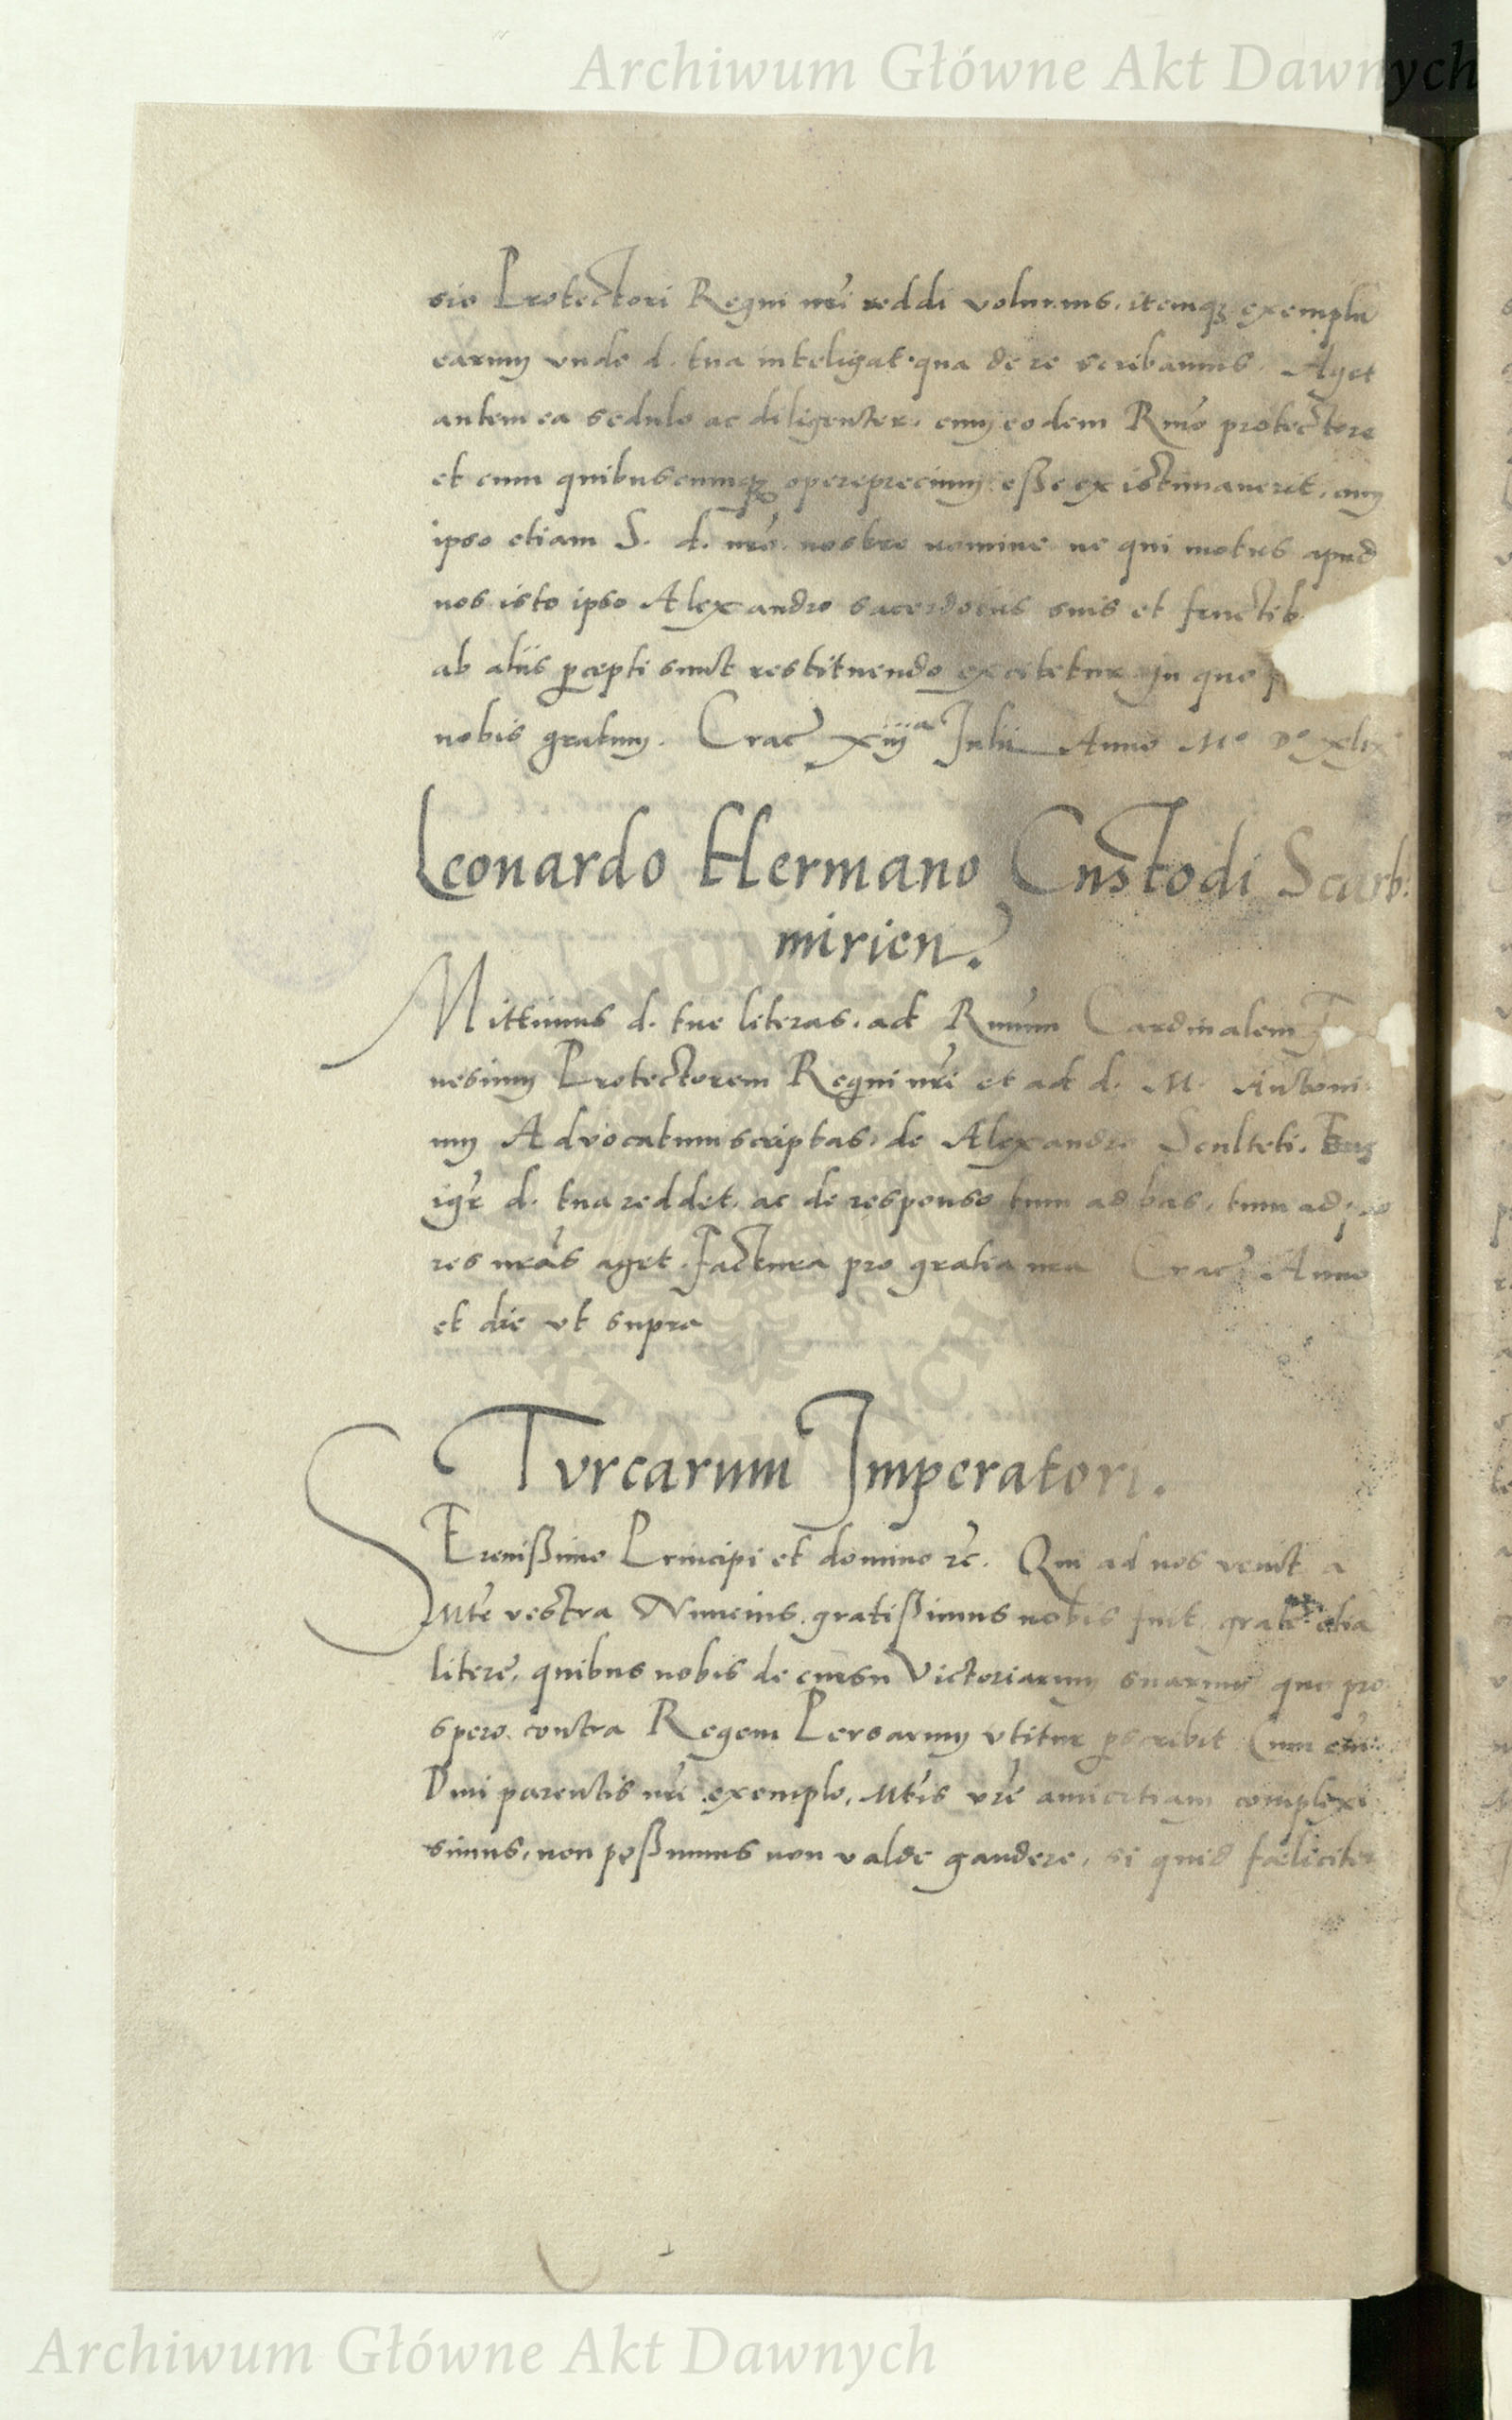 Archiwum Główne Akt Dawnych
sio Protectori Regni nrĩ reddi volumus, itemq; exempla
earum unde d. tua inteligat qua de re scribamus. Aget
autem ea sedulo ac diligenter, cum eodem Rmo protectore
et cum quibuscumq; opereprecium esse existimaverit, cum
ipso etiam S. d. nrõ nostro nomine ne qui motus apud
nos isto ipso Alexandro sacerdotiis suis et fructib
ab aliis p̱cepti sunt restituendo excitetur In quo
nobis gratum. Crac̃ xiiijᵃ Julii Anno Mº Dº xlix
Leonardo Hermano Custodi Scarb:
mirien.
Mittimus d. tue literas, ad Rmum Cardinalem
nesium Protectorem Regni nrĩ et ad d. M. Antoni
um Advocatum scriptas, de Alexandro Sculteti. Eas
igr̃ d. tua reddet, ac de responso tum ad has, tum ad
res nrãs aget. factura pro gratia nrã Crac̃ Anno
et die ut supra
Turcarum Imperatori.
Serenissimo Principi et domino etc̃. Qui ad nos venit a
Mte vestra Nuncius, gratissimus nobis fuit, grate etia
litere, quibus nobis de cursu Victoriarum suarum quo pro
spero, contra Regem Persarum utitur p̱scribit Cum
Dni parentis nrĩ exemplo, Mtis vrẽ amicitiam complexi
simus, non possumus non valde gaudere, si quid fœliciter
Archiwum Główne Akt Dawnych